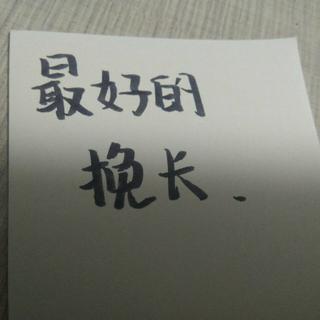 最好的
挽长.